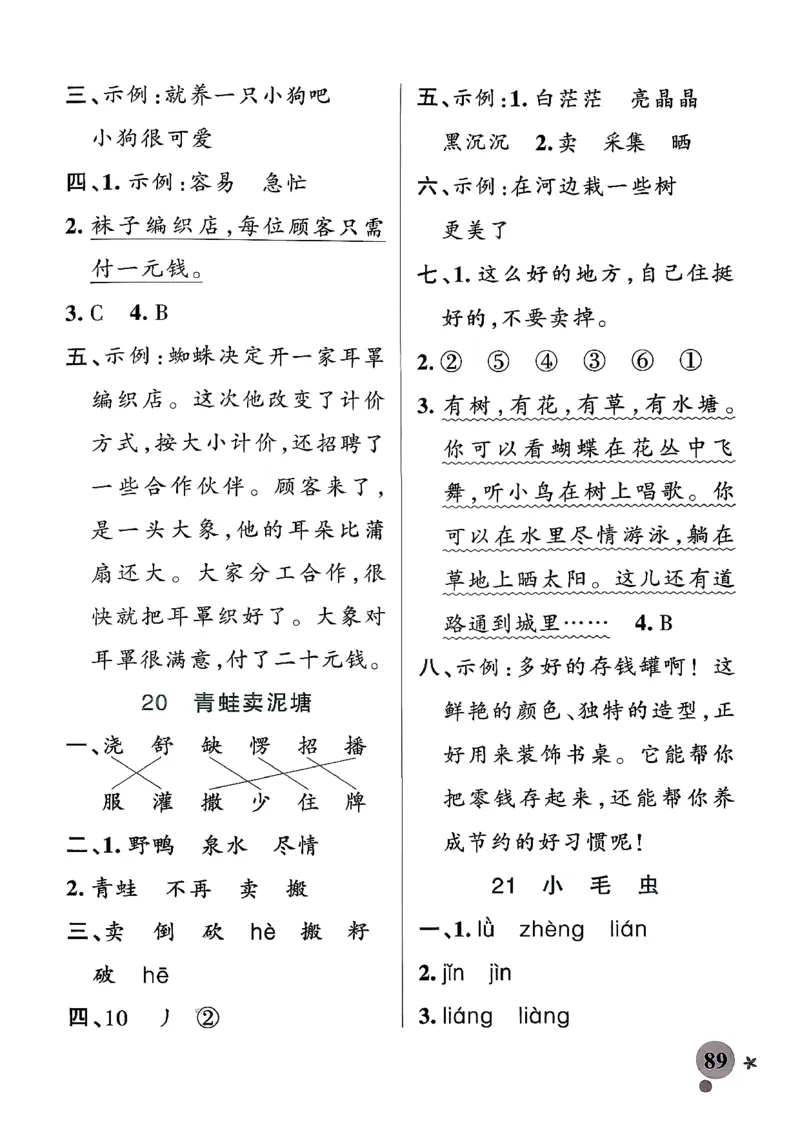 三、示例:就养一只小狗吧
小狗很可爱
四、1. 示例:容易 急忙
2. 袜子编织店,每位顾客只需
付一元钱。
3. C 4. B
五、示例:蜘蛛决定开一家耳罩
编织店。这次他改变了计价
方式,按大小计价,还招聘了
一些合作伙伴。顾客来了,
是一头大象,他的耳朵比蒲
扇还大。大家分工合作,很
快就把耳罩织好了。大象对
耳罩很满意,付了二十元钱。
20 青蛙卖泥塘
一、浇 舒 缺 愣 招 播
服 灌 撒 少 住 牌
二、1. 野鸭 泉水 尽情
2. 青蛙 不再 卖 搬
三、卖 倒 砍 hè 搬 籽
破 hē
四、10 丿 ②
五、示例:1. 白茫茫 亮晶晶
黑沉沉 2. 卖 采集 晒
六、示例:在河边栽一些树
更美了
七、1. 这么好的地方,自己住挺
好的,不要卖掉。
2. ② ⑤ ④ ③ ⑥ ①
3. 有树,有花,有草,有水塘。
你可以看蝴蝶在花丛中飞
舞,听小鸟在树上唱歌。你
可以在水里尽情游泳,躺在
草地上晒太阳。这儿还有道
路通到城里…… 4. B
八、示例:多好的存钱罐啊!这
鲜艳的颜色、独特的造型,正
好用来装饰书桌。它能帮你
把零钱存起来,还能帮你养
成节约的好习惯呢!
21 小毛虫
一、1. lǜ zhèng lián
2. jǐn jìn
3. liáng liàng
89